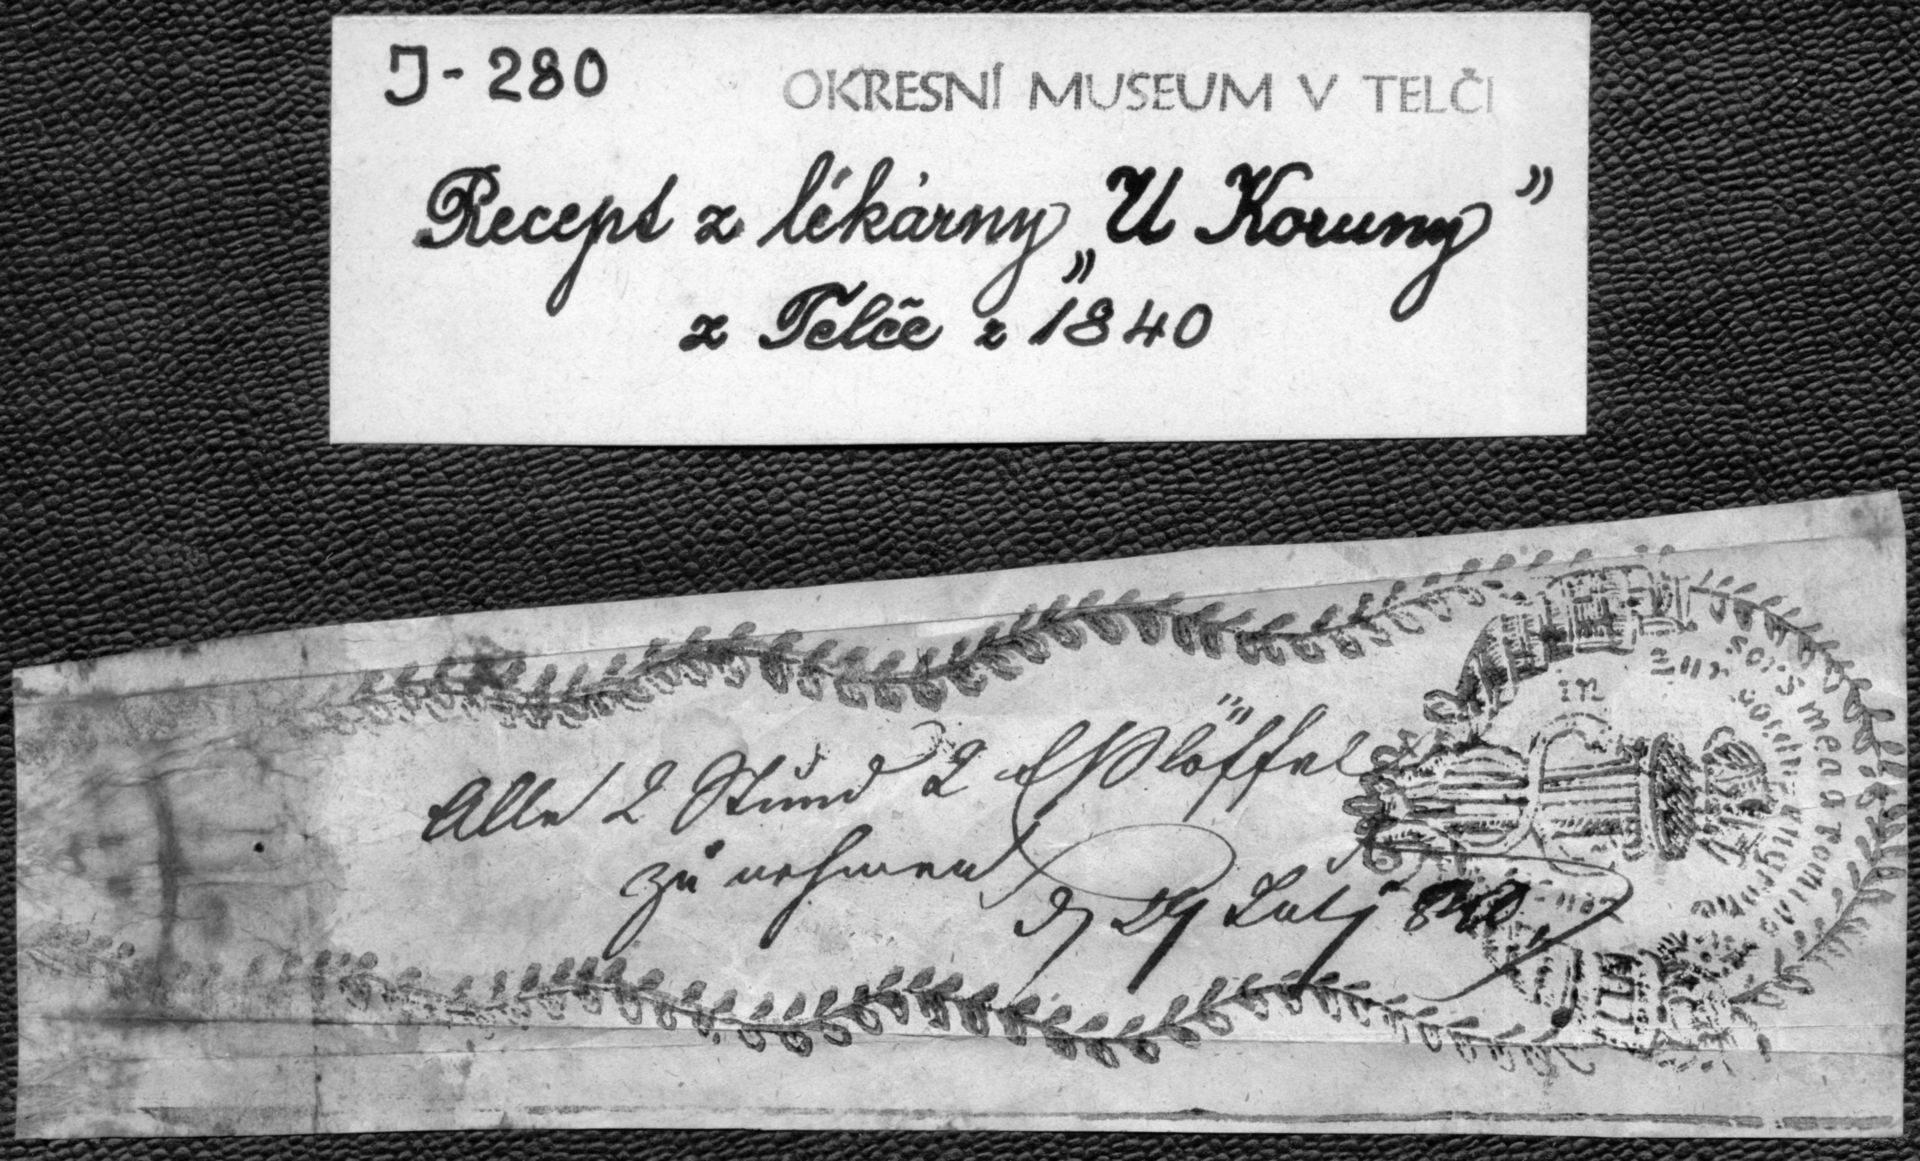 J-280
OKRESNÍ MUSEUM V TELČI
Recept z lékárny „U Koruny”
z Telče z 1840
Alle 2 Stund 2 Eßlöffel
zu nehmen
Julj 840
sors mea a Domino
Zur
in